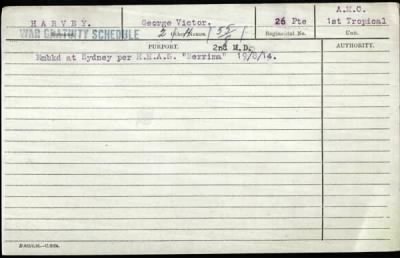 A.M.C.
HARVEY. George Victor. 26 Pte 1st Tropical
WAR GRATUITY SCHEDULE Other Names. 55 Regimental No. Unit.
PURPORT. 2nd M.D. AUTHORITY.
Embkd at Sydney per H.M.A.S. "Berrima" 19/8/14.